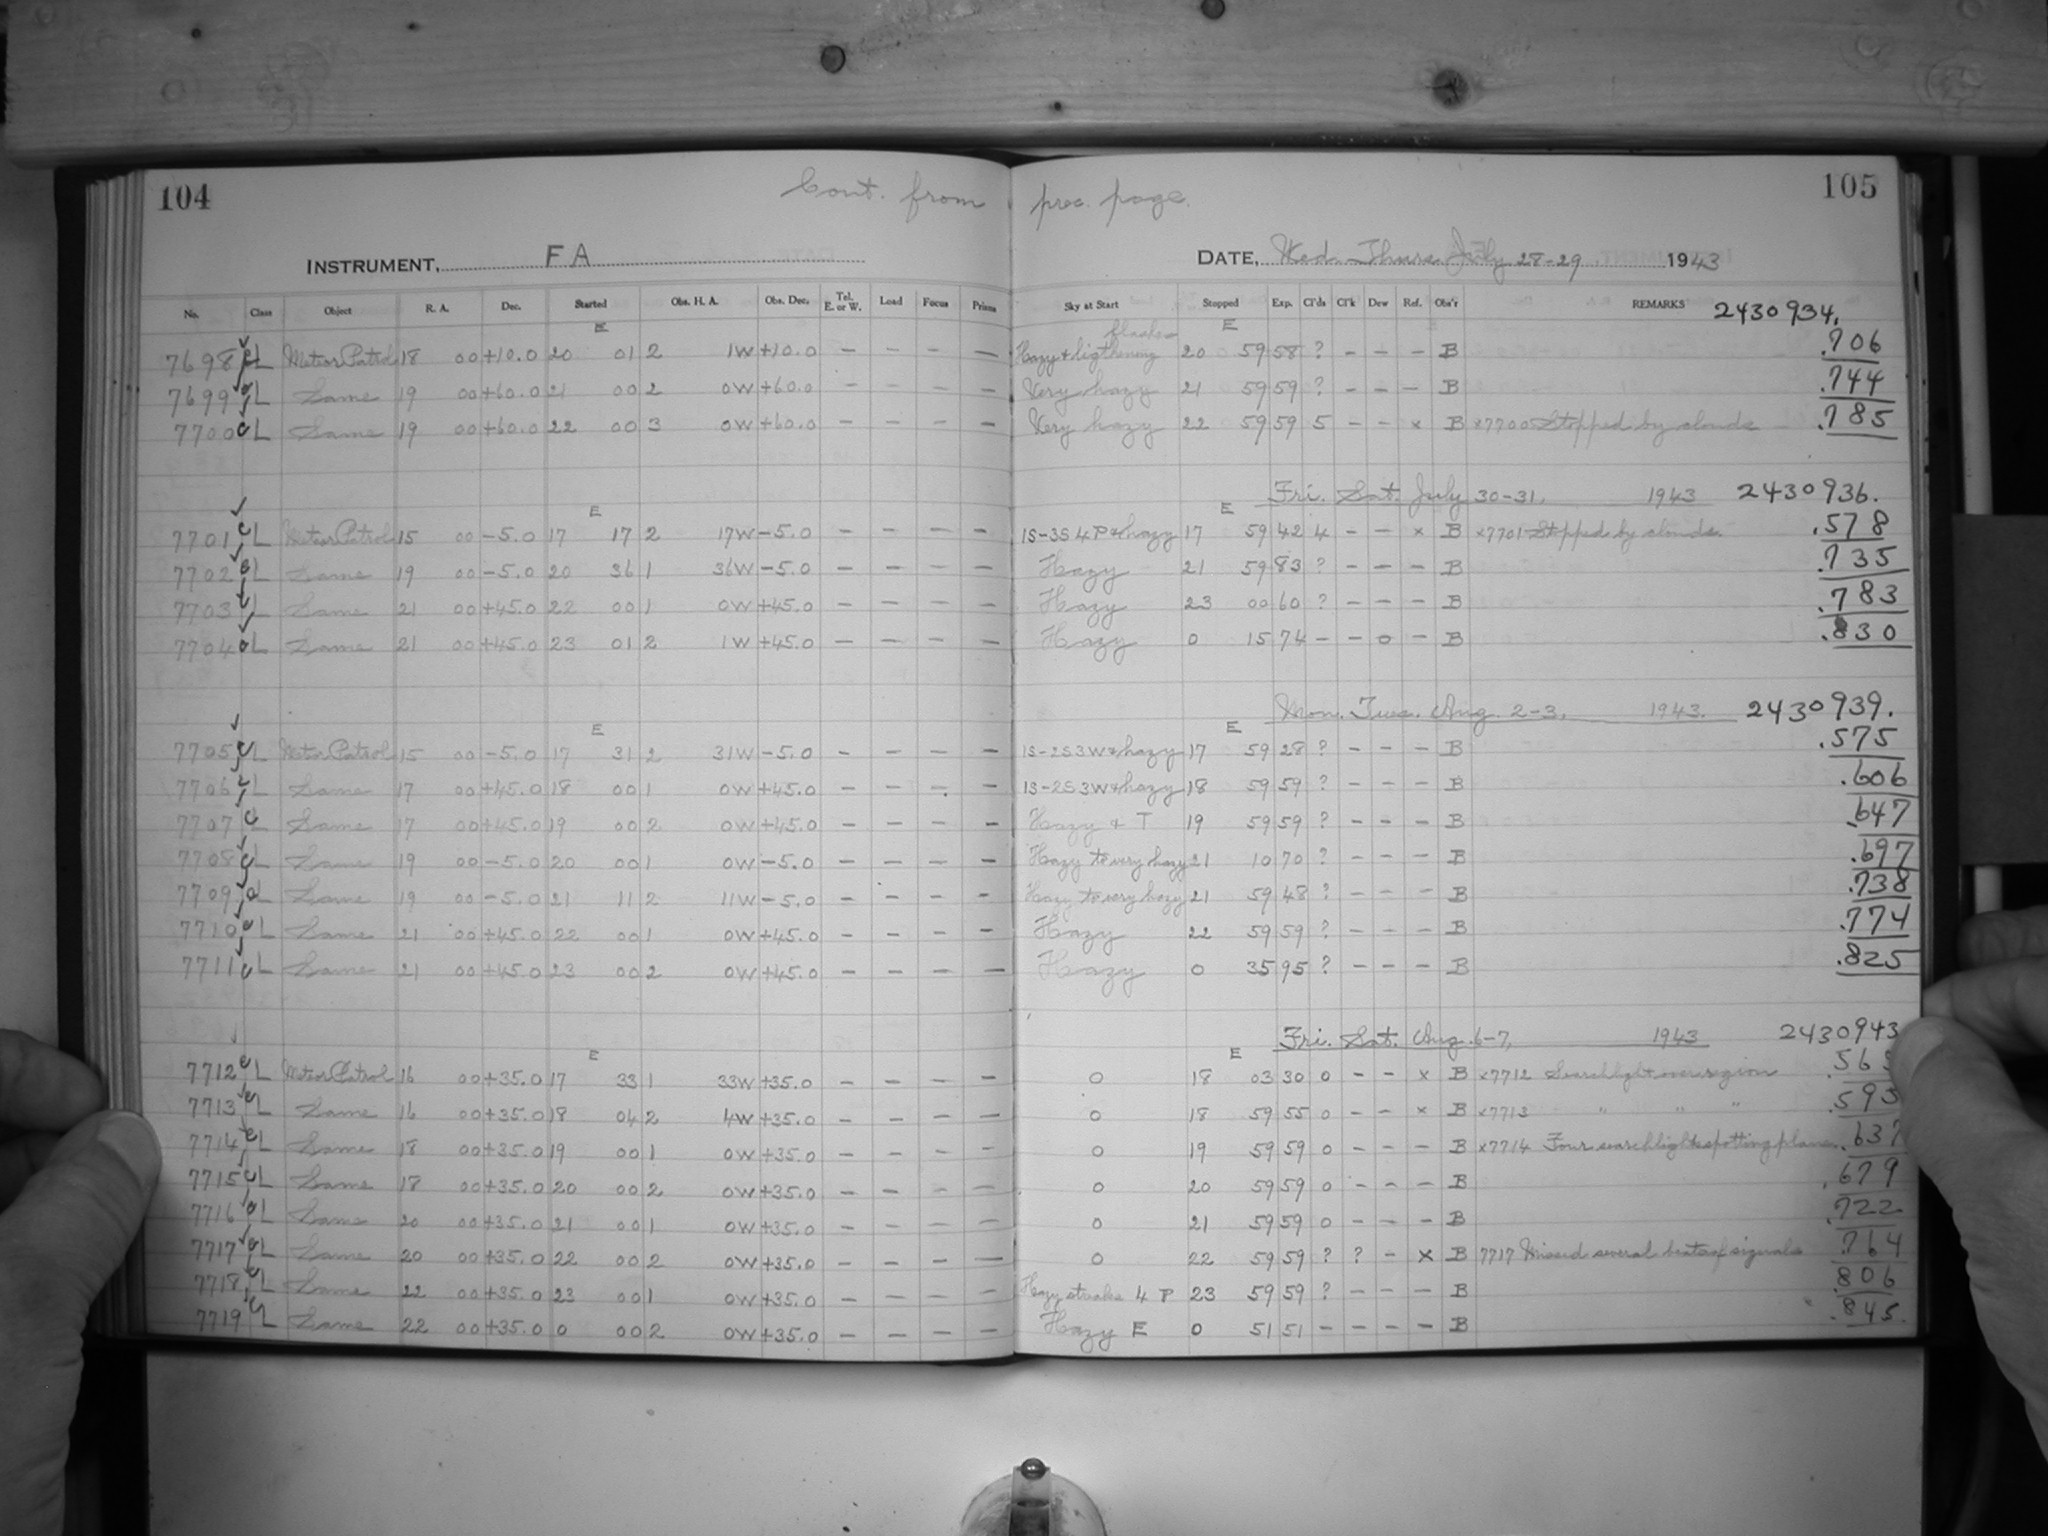 104 Cont. from prec. page. 105
INSTRUMENT, FA DATE, Wed. Thurs. July 28-29 1943
No. Class Object R. A. Dec. Started Obs. H. A. Obs. Dec. Tel. E. or W. Load Focus Prisms Sky at Start Stopped Exp. Cl'ds Cl'k Dew Ref. Obs'r REMARKS 2430934.
E flashes E
7698 CL Meteor Patrol 18 00 +10.0 20 01 2 1W +10.0 — — — — Hazy & ligthening 20 59 58 ? — — — B .706
7699 CL Same 19 00 +60.0 21 00 2 0W +60.0 — — — — Very hazy 21 59 59 ? — — — B .744
7700 CL Same 19 00 +60.0 22 00 3 0W +60.0 — — — — Very hazy 22 59 59 5 — — x B x7700 Stopped by clouds .785
Fri. Sat. July 30-31, 1943 2430936.
E E
7701 CL Meteor Patrol 15 00 -5.0 17 17 2 17W -5.0 — — — — 1S-3S 4P & hazy 17 59 42 4 — — x B x7701 Stopped by clouds. .578
7702 CL Same 19 00 -5.0 20 36 1 36W -5.0 — — — — Hazy 21 59 83 ? — — — B .735
7703 CL Same 21 00 +45.0 22 00 1 0W +45.0 — — — — Hazy 23 00 60 ? — — — B .783
7704 CL Same 21 00 +45.0 23 01 2 1W +45.0 — — — — Hazy 0 15 74 — — 0 — B .830
Mon. Tues. Aug. 2-3, 1943. 2430939.
E E
7705 CL Meteor Patrol 15 00 -5.0 17 31 2 31W -5.0 — — — — 1S-2S 3W & hazy 17 59 28 ? — — — B .575
7706 CL Same 17 00 +45.0 18 00 1 0W +45.0 — — — — 1S-2S 3W & hazy 18 59 59 ? — — — B .606
7707 CL Same 17 00 +45.0 19 00 2 0W +45.0 — — — — Hazy & T 19 59 59 ? — — — B .647
7708 CL Same 19 00 -5.0 20 00 1 0W -5.0 — — — — Hazy to very hazy 21 10 70 ? — — — B .697
7709 CL Same 19 00 -5.0 21 11 2 11W -5.0 — — — — Hazy to very hazy 21 59 48 ? — — — B .738
7710 CL Same 21 00 +45.0 22 00 1 0W +45.0 — — — — Hazy 22 59 59 ? — — — B .774
7711 CL Same 21 00 +45.0 23 00 2 0W +45.0 — — — — Hazy 0 35 95 ? — — — B .825
Fri. Sat. Aug. 6-7, 1943 2430943
E E
7712 CL Meteor Patrol 16 00 +35.0 17 33 1 33W +35.0 — — — — 0 18 03 30 0 — — x B x7712 Searchlight over region
7713 CL Same 16 00 +35.0 18 04 2 4W +35.0 — — — — 0 18 59 55 0 — — x B x7713 " " " .595
7714 CL Same 18 00 +35.0 19 00 1 0W +35.0 — — — — 0 19 59 59 0 — — — B x7714 Four searchlights spotting plane. .637
7715 CL Same 18 00 +35.0 20 00 2 0W +35.0 — — — — 0 20 59 59 0 — — — B .679
7716 CL Same 20 00 +35.0 21 00 1 0W +35.0 — — — — 0 21 59 59 0 — — — B .722
7717 CL Same 20 00 +35.0 22 00 2 0W +35.0 — — — — 0 22 59 59 ? ? — x B 7717 Missed several beats of signals .764
7718 CL Same 22 00 +35.0 23 00 1 0W +35.0 — — — — Hazy streaks 4 P 23 59 59 ? — — — B .806
7719 CL Same 22 00 +35.0 0 00 2 0W +35.0 — — — — Hazy E 0 51 51 — — — — B .845.